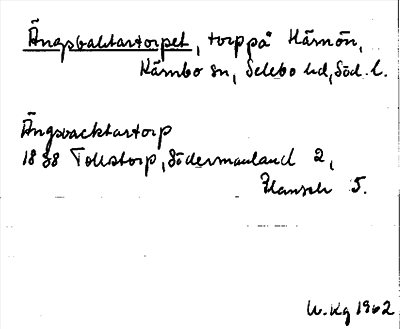 Ängsvaktartorpet, torp på Härnön,
Kärnbo sn, Selebo hd, Söd. l.
Ängsvacktartorp
1838 Tollstorp, Södermanland 2,
Hansch 5.
W. Kg 1962